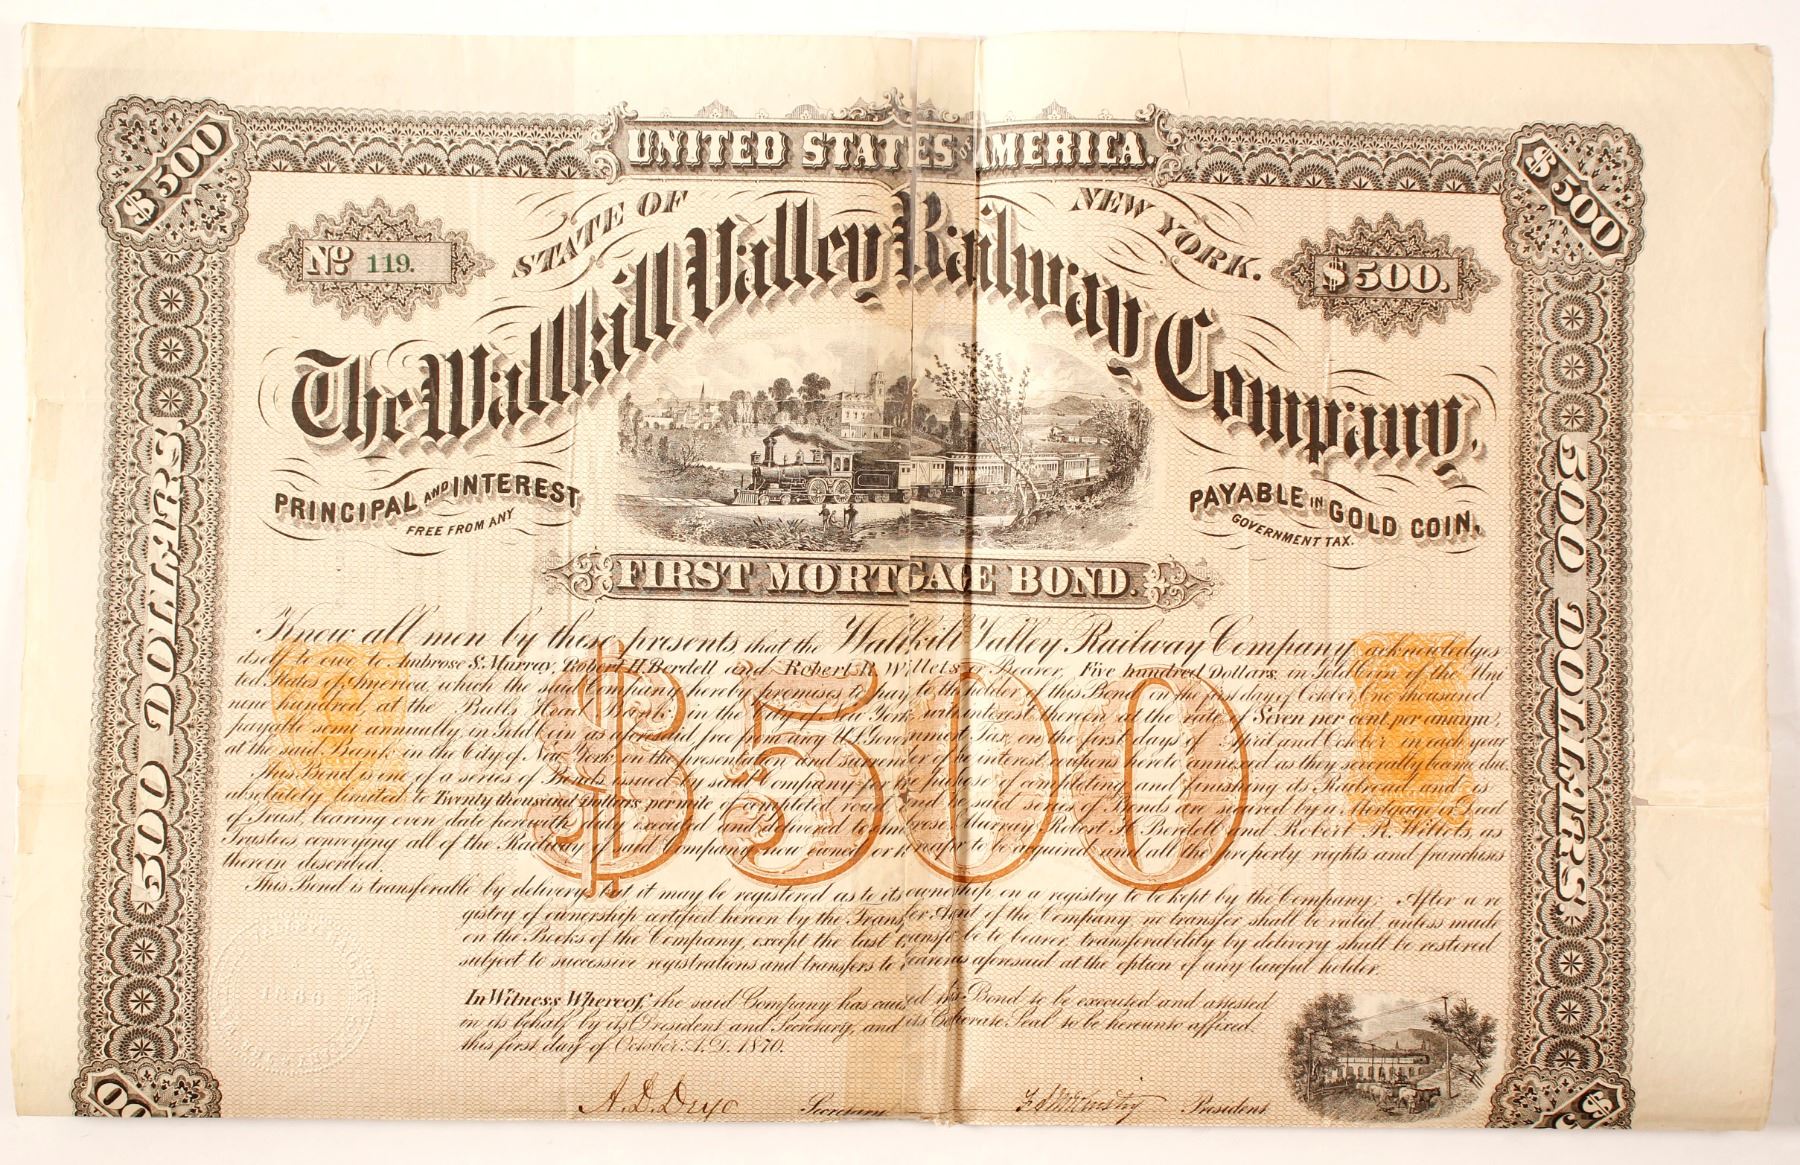 UNITED STATES OF AMERICA.
$500
$500
No 119.
STATE OF NEW YORK.
$500.
The Wallkill Valley Railway Company,
PRINCIPAL AND INTEREST
FREE FROM ANY
PAYABLE IN GOLD COIN,
GOVERNMENT TAX.
FIRST MORTGAGE BOND.
500 DOLLARS
500 DOLLARS
$500
Know all men by these presents that the Wallkill Valley Railway Company acknowledges
itself to owe to Ambrose S. Murray, Robert H. Berdell and Robert R. Willets or Bearer, Five hundred Dollars, in Gold Coin of the Uni
ted States of America, which the said Company hereby promises to pay to the holder of this Bond on the first day of October One thousand
nine hundred, at the Bulls Head Bank in the City of New York, with interest thereon at the rate of Seven per cent. per annum,
payable semi annually, in Gold coin as aforesaid free from any U.S. Government Tax, on the first days of April and October in each year
at the said Bank in the City of New York on the presentation and surrender of the interest coupons hereto annexed as they severally become due.
This Bond is one of a series of Bonds issued by said Company for the purpose of completing and finishing its Railroad, and is
absolutely limited to Twenty thousand Dollars per mile of completed road, and the said series of Bonds are secured by a Mortgage or Deed
of Trust, bearing even date herewith duly executed and delivered to Ambrose S. Murray, Robert H. Berdell and Robert R. Willets, as
Trustees conveying all of the Railway of said Company now owned or hereafter to be acquired and all the property rights and franchises
therein described.
This Bond is transferable by delivery, but it may be registered as to its ownership on a registry to be kept by the Company. After a re
gistry of ownership certified hereon by the Transfer Agent of the Company no transfer shall be valid unless made
on the Books of the Company, except the last transfer be to bearer, transferability by delivery shall be restored
subject to successive registrations and transfers to bearer as aforesaid at the option of any lawful holder.
In Witness Whereof, the said Company has caused this Bond to be executed and attested
in its behalf by its President and Secretary, and its Corporate Seal to be hereunto affixed
this first day of October A.D. 1870.
1866
Secretary
President